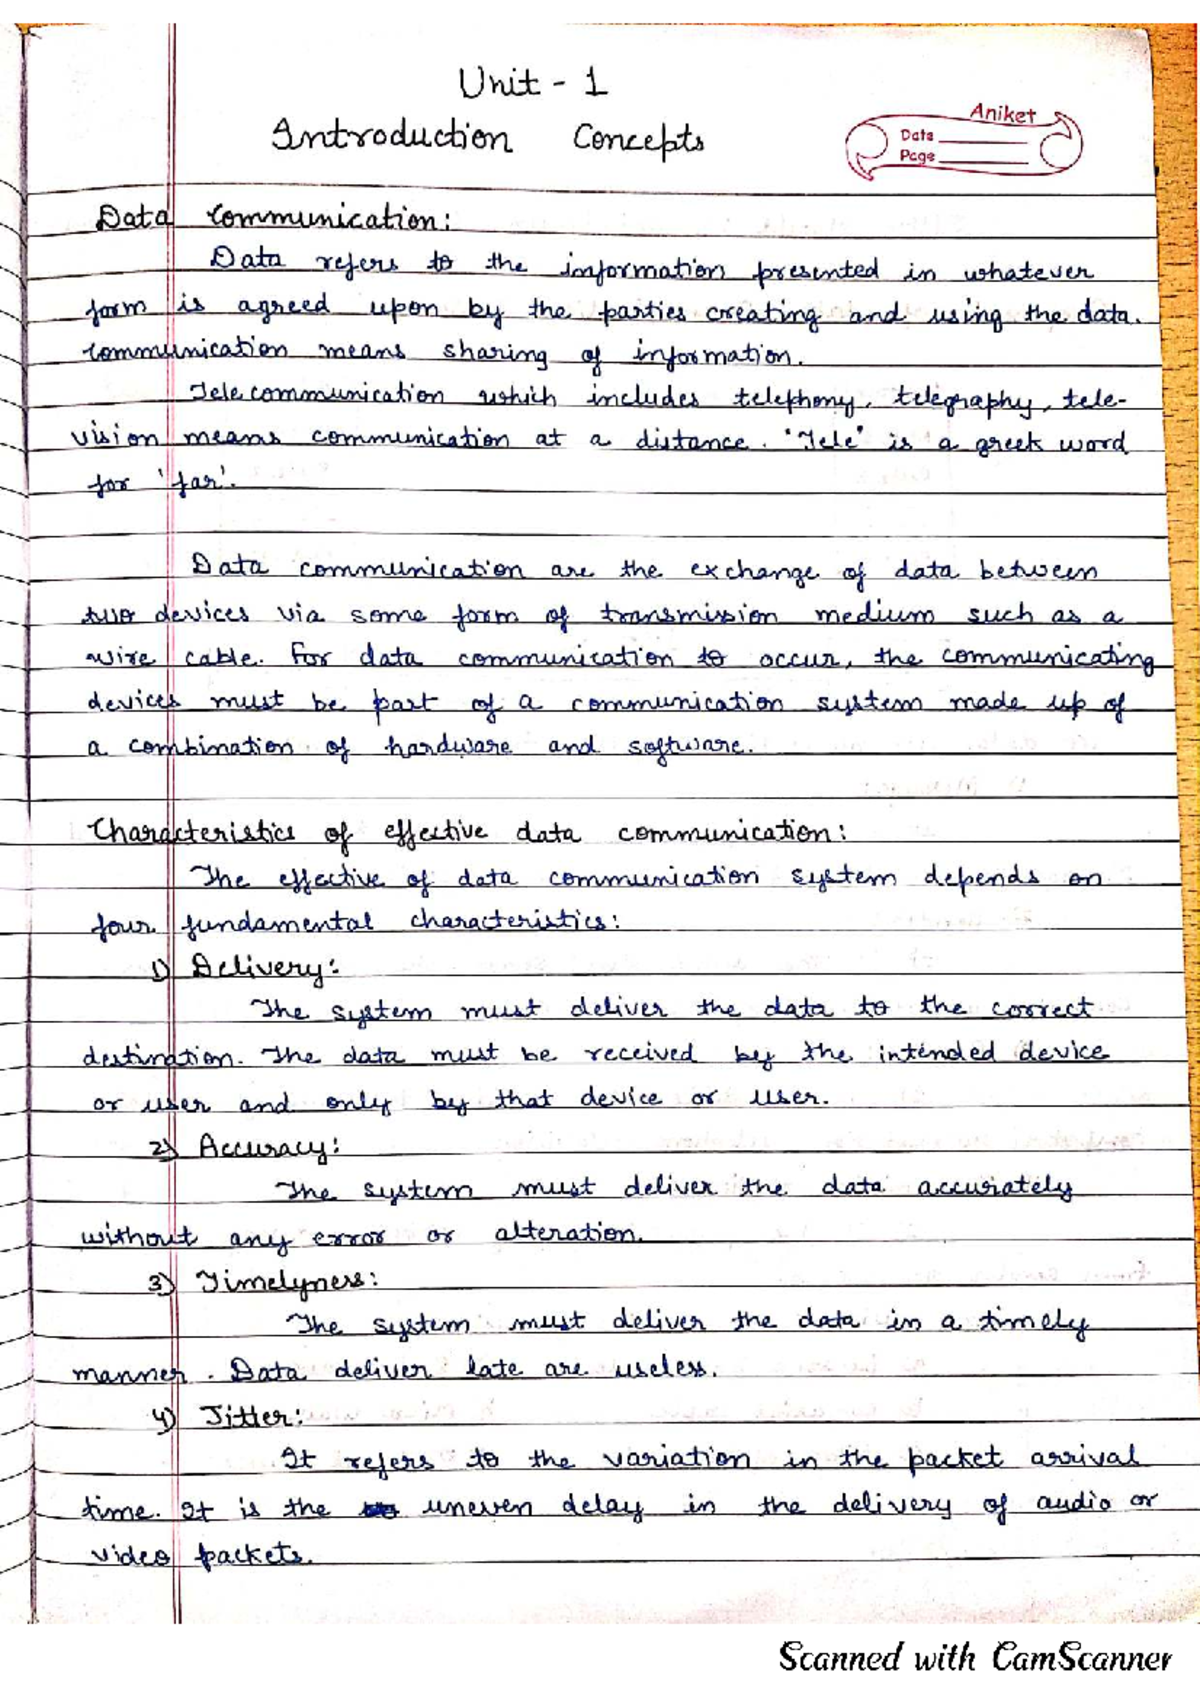 Unit - 1
Introduction Concepts
Aniket
Date
Page
Data Communication:
Data refers to the information presented in whatever
form is agreed upon by the parties creating and using the data.
Communication means sharing of information.
Telecommunication which includes telephony, telegraphy, tele-
vision means communication at a distance. 'Tele' is a greek word
for 'far'.
Data communication are the exchange of data between
two devices via some form of transmission medium such as a
wire cable. For data communication to occur, the communicating
devices must be part of a communication system made up of
a combination of hardware and software.
Characteristics of effective data communication:
The effective of data communication system depends on
four fundamental characteristics:
1) Delivery:
The system must deliver the data to the correct
destination. The data must be received by the intended device
or user and only by that device or user.
2) Accuracy:
The system must deliver the data accurately
without any error or alteration.
3) Timelyness:
The system must deliver the data in a timely
manner. Data deliver late are useless.
4) Jitter:
It refers to the variation in the packet arrival
time. It is the uneven delay in the delivery of audio or
video packets.
Scanned with CamScanner